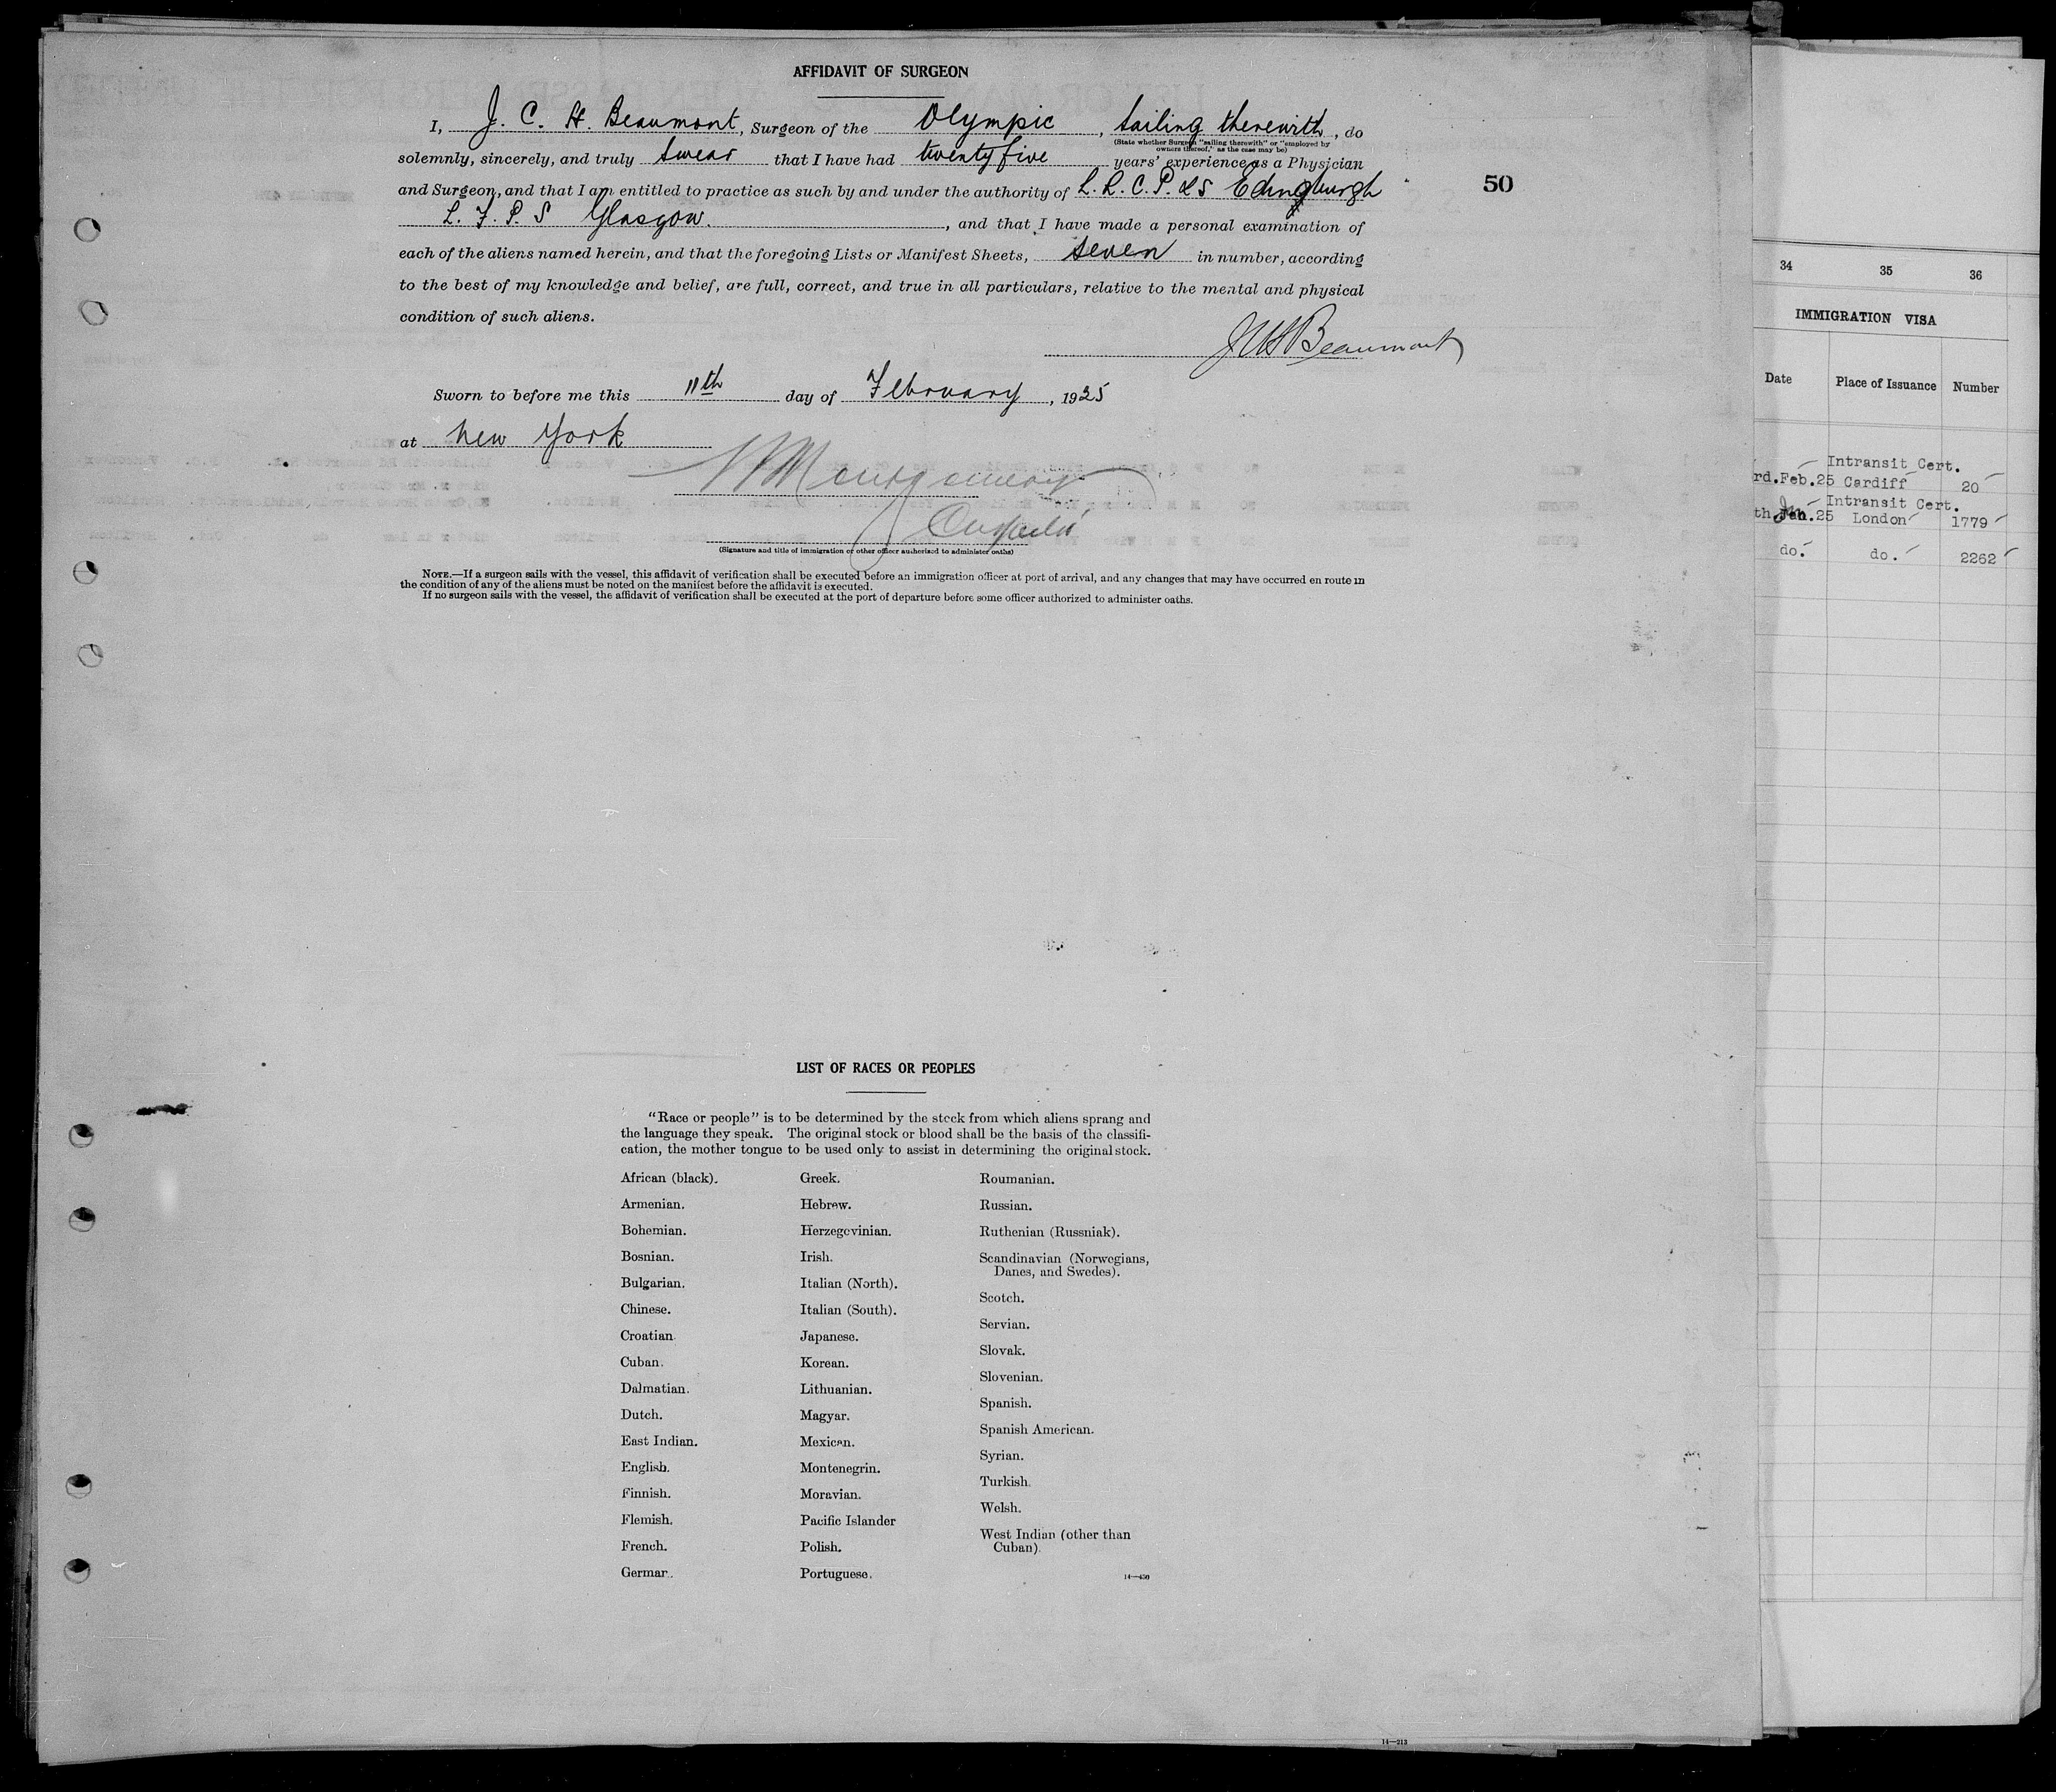 AFFIDAVIT OF SURGEON
I, J. C. H. Beaumont, Surgeon of the Olympic, sailing therewith, do
(State whether Surgeon "sailing therewith" or "employed by
owners thereof," as the case may be)
solemnly, sincerely, and truly swear that I have had twenty five years' experience as a Physician
and Surgeon, and that I am entitled to practice as such by and under the authority of L. R. C. P. & S Edingburgh
L. F. P. S Glasgow. , and that I have made a personal examination of
each of the aliens named herein, and that the foregoing Lists or Manifest Sheets, seven in number, according
to the best of my knowledge and belief, are full, correct, and true in all particulars, relative to the mental and physical
condition of such aliens.
JCHBeaumont
Sworn to before me this 11th day of February, 1925
at New York
Montgomery
(Signature and title of immigration or other officer authorized to administer oaths)
NOTE.—If a surgeon sails with the vessel, this affidavit of verification shall be executed before an immigration officer at port of arrival, and any changes that may have occurred en route in
the condition of any of the aliens must be noted on the manifest before the affidavit is executed.
If no surgeon sails with the vessel, the affidavit of verification shall be executed at the port of departure before some officer authorized to administer oaths.
50
LIST OF RACES OR PEOPLES
"Race or people" is to be determined by the stock from which aliens sprang and
the language they speak. The original stock or blood shall be the basis of the classifi-
cation, the mother tongue to be used only to assist in determining the original stock.
African (black).
Armenian.
Bohemian.
Bosnian.
Bulgarian.
Chinese.
Croatian.
Cuban.
Dalmatian.
Dutch.
East Indian.
English.
Finnish.
Flemish.
French.
German.
Greek.
Hebrew.
Herzegovinian.
Irish.
Italian (North).
Italian (South).
Japanese.
Korean.
Lithuanian.
Magyar.
Mexican.
Montenegrin.
Moravian.
Pacific Islander
Polish.
Portuguese.
Roumanian.
Russian.
Ruthenian (Russniak).
Scandinavian (Norwegians,
Danes, and Swedes).
Scotch.
Servian.
Slovak.
Slovenian.
Spanish.
Spanish American.
Syrian.
Turkish.
Welsh.
West Indian (other than
Cuban).
14—430
14—213
34 35 36
IMMIGRATION VISA
Date Place of Issuance Number
Intransit Cert.
rd.Feb.25 Cardiff 20
Intransit Cert.
th Jan.25 London 1779
do. do. 2262